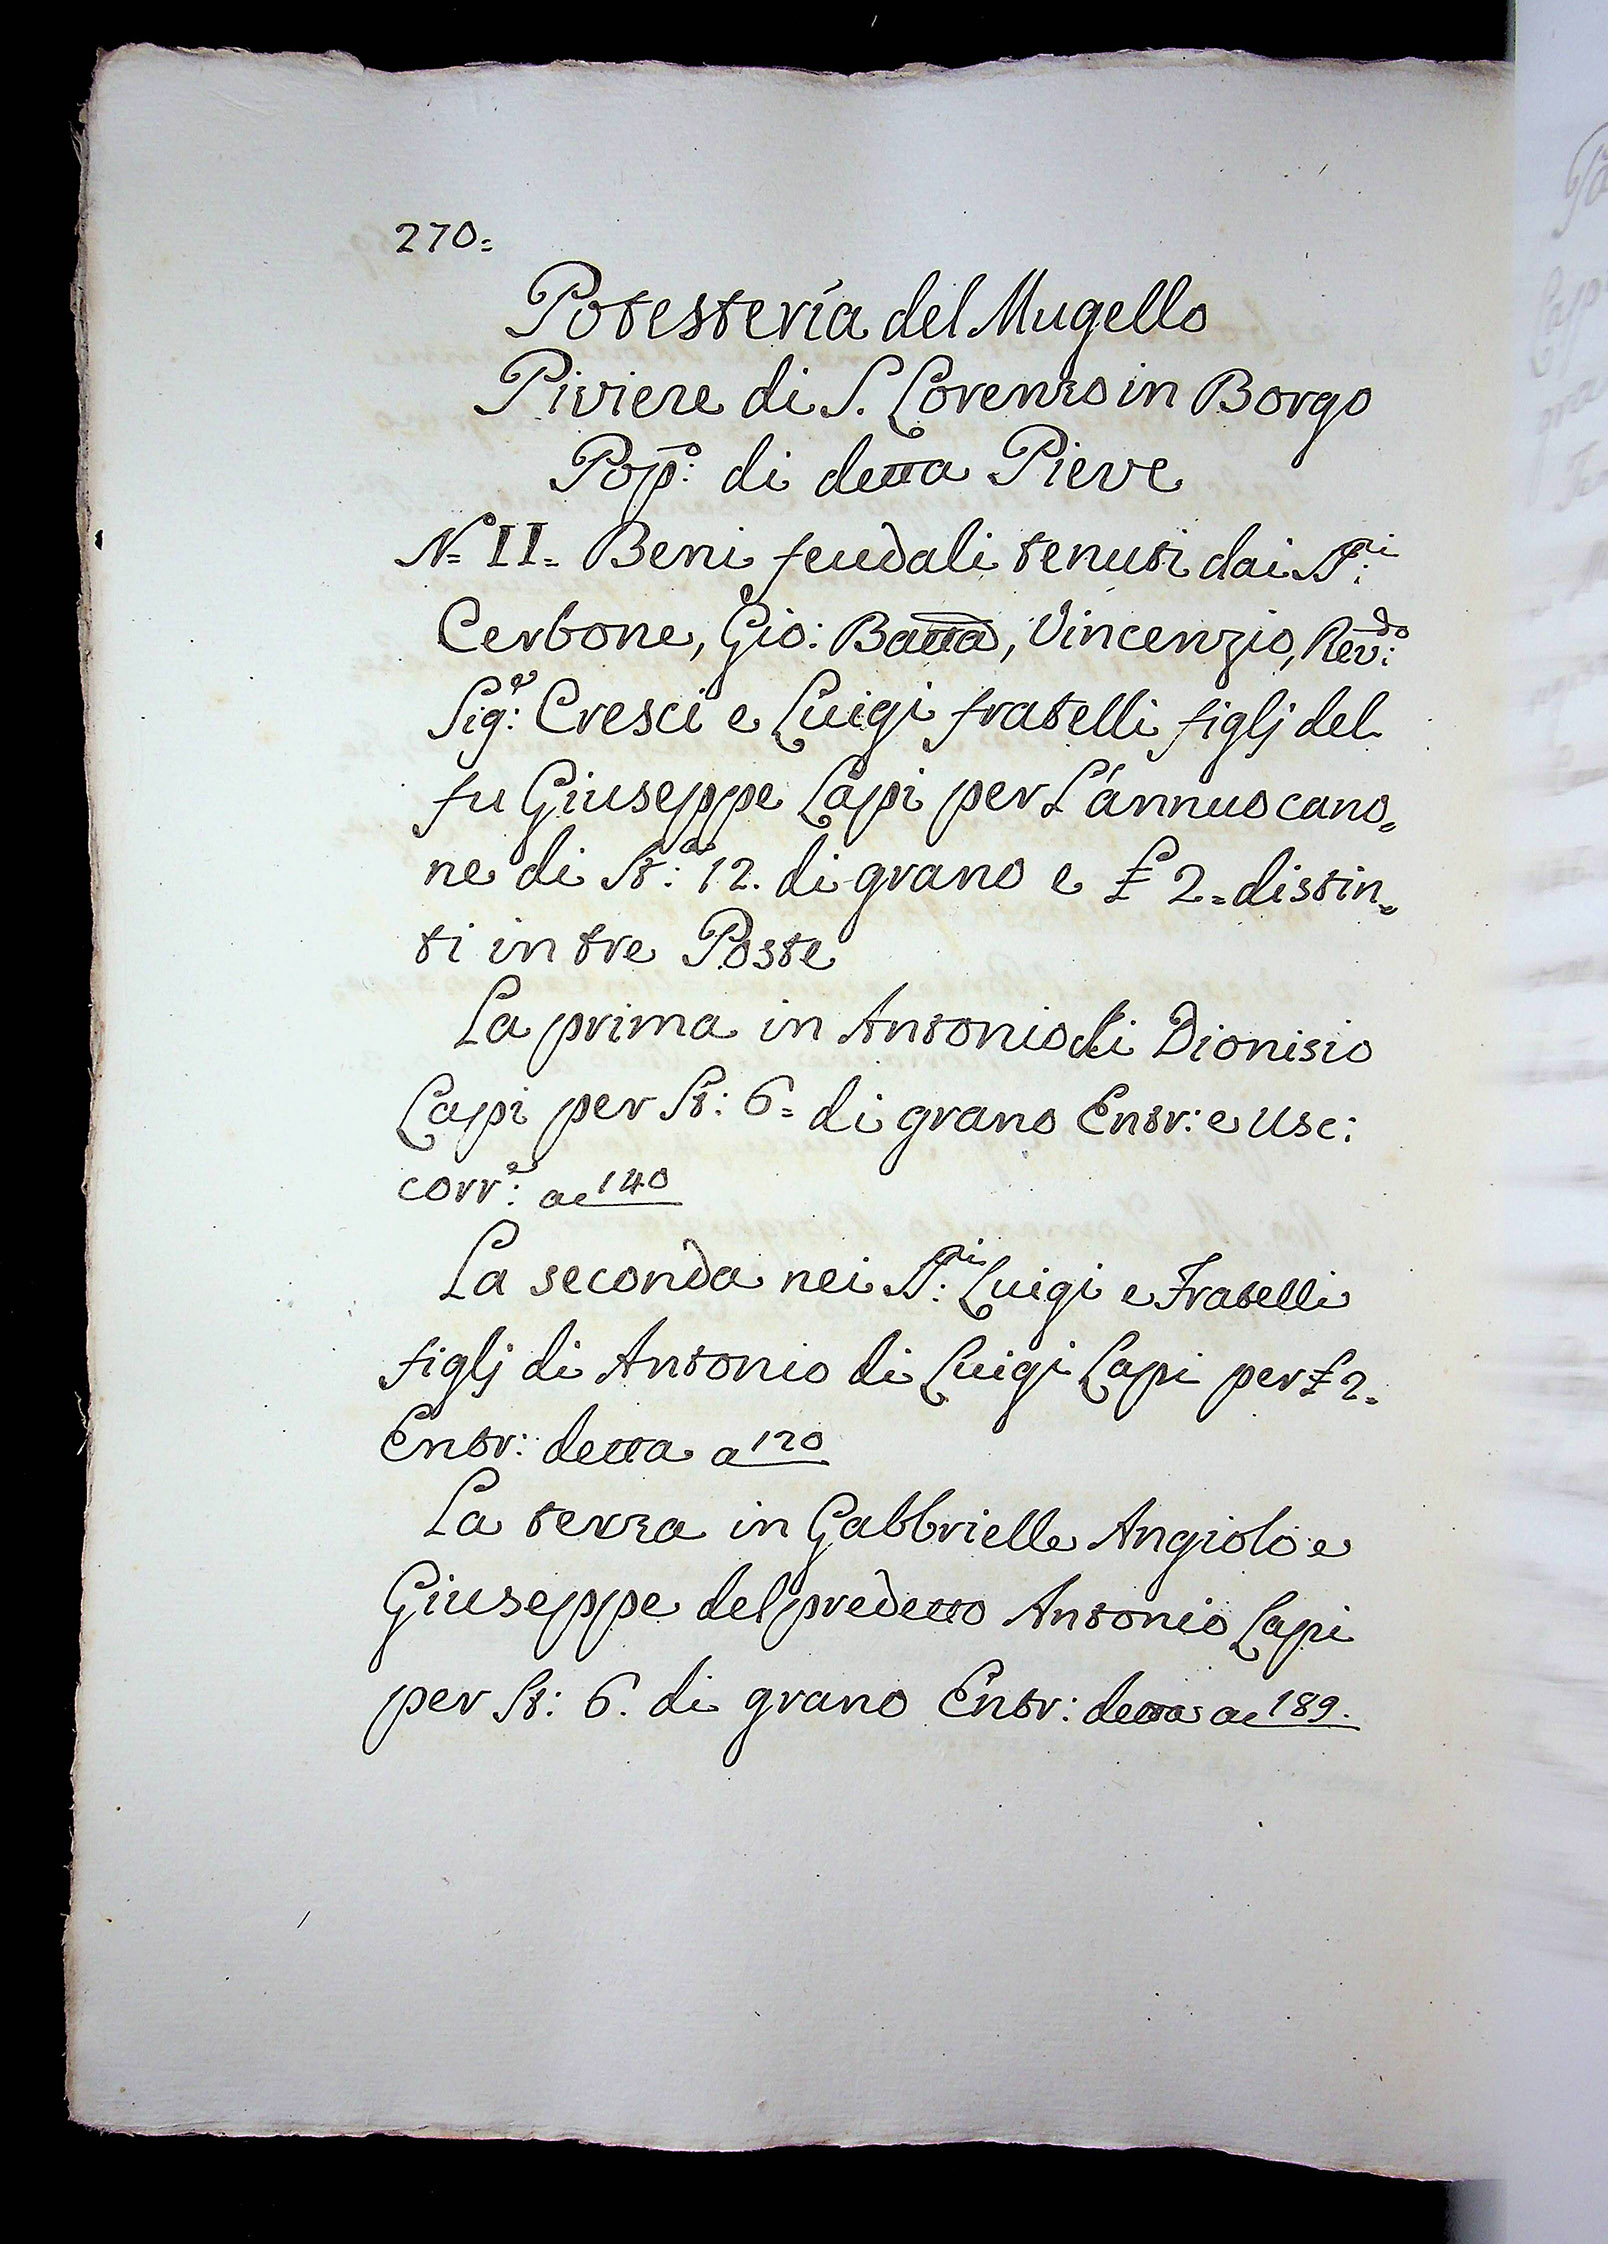 270=
Potesteria del Mugello
Piviere di S. Lorenzo in Borgo
Pop:º di detta Pieve
N= II= Beni feudali tenuti dai SS:ri
Cerbone, Gio: Batta, Vincenzio, Rev:do
Sig:e Cresci e Luigi fratelli figlj del
fu Giuseppe Lapi per L'annuo cano=
ne di St:a 12. di grano e £ 2= distin=
ti in tre Poste
La prima in Antonio di Dionisio
Lapi per St: 6= di grano Entr: e Usc:
corr:e ac 140
La seconda nei SS:ri Luigi e Fratelli
figlj di Antonio di Luigi Lapi per £ 2=
Entr: detta a 120
La terza in Gabbrielle Angiolo e
Giuseppe del predetto Antonio Lapi
per St: 6. di grano Entr: detta ac 189.